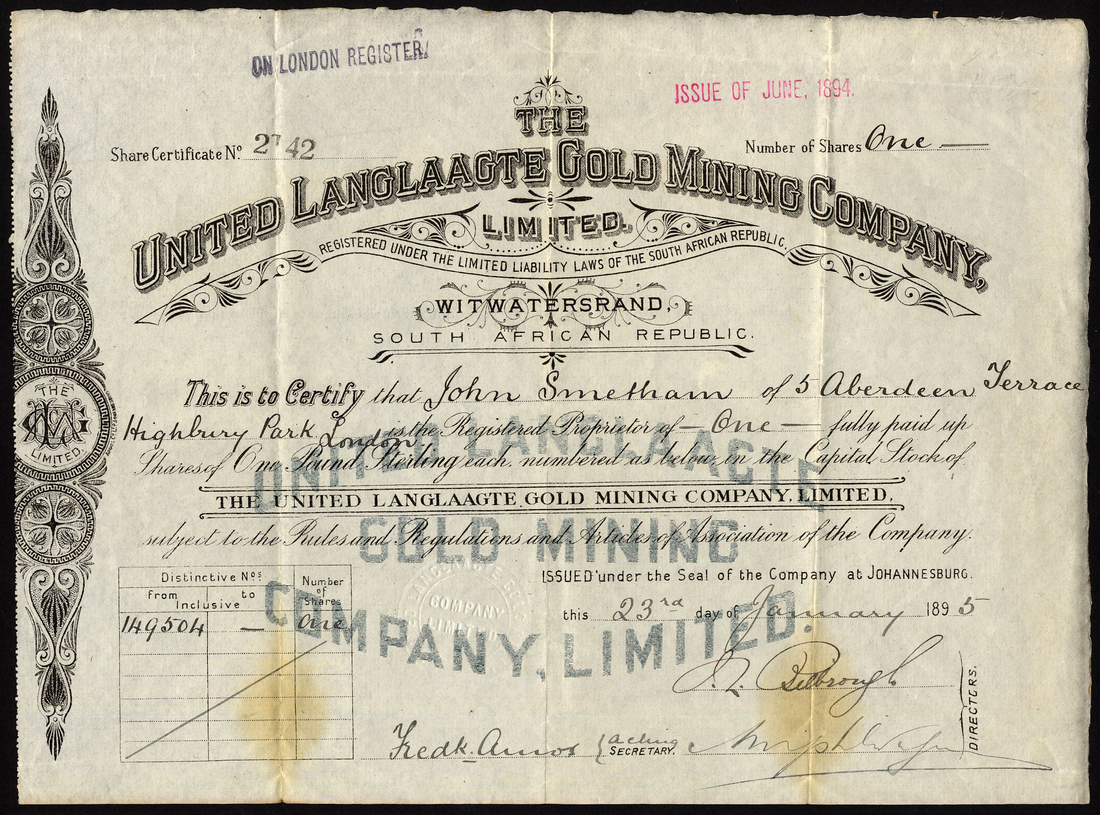 ON LONDON REGISTER.
ISSUE OF JUNE, 1894.
Share Certificate No. 2742
Number of Shares One —
THE
UNITED LANGLAAGTE GOLD MINING COMPANY,
LIMITED.
REGISTERED UNDER THE LIMITED LIABILITY LAWS OF THE SOUTH AFRICAN REPUBLIC.
WITWATERSRAND,
SOUTH AFRICAN REPUBLIC.
This is to Certify that John Smetham of 5 Aberdeen Terrace
Highbury Park London, is the Registered Proprietor of — One — fully paid up
Shares of One Pound Sterling each, numbered as below, in the Capital Stock of
THE UNITED LANGLAAGTE GOLD MINING COMPANY, LIMITED,
subject to the Rules and Regulations and Articles of Association of the Company.
UNITED LANGLAAGTE
GOLD MINING
COMPANY, LIMITED.
THE
LIMITED.
Distinctive Nos.
from to
Inclusive
Number of Shares
149504 — One
COMPANY
LIMITED
ISSUED under the Seal of the Company at JOHANNESBURG.
this 23rd day of January 1895
DIRECTORS.
Fredk. Amos Acting SECRETARY.